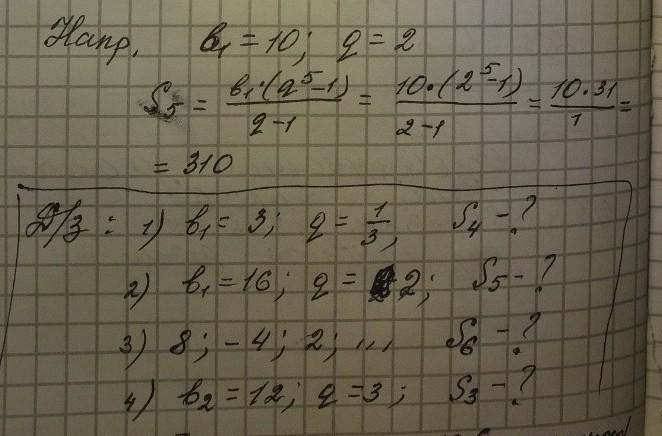 Напр. b₁ = 10; q = 2
S₅ = b₁·(q⁵-1) / q-1 = 10·(2⁵-1) / 2-1 = 10·31 / 1 =
= 310
Д/з: 1) b₁ = 3; q = 1/3, S₄ - ?
2) b₁ = 16; q = 2; S₅ - ?
3) 8; -4; 2; ... S₆ - ?
4) b₂ = 12; q = 3; S₃ - ?